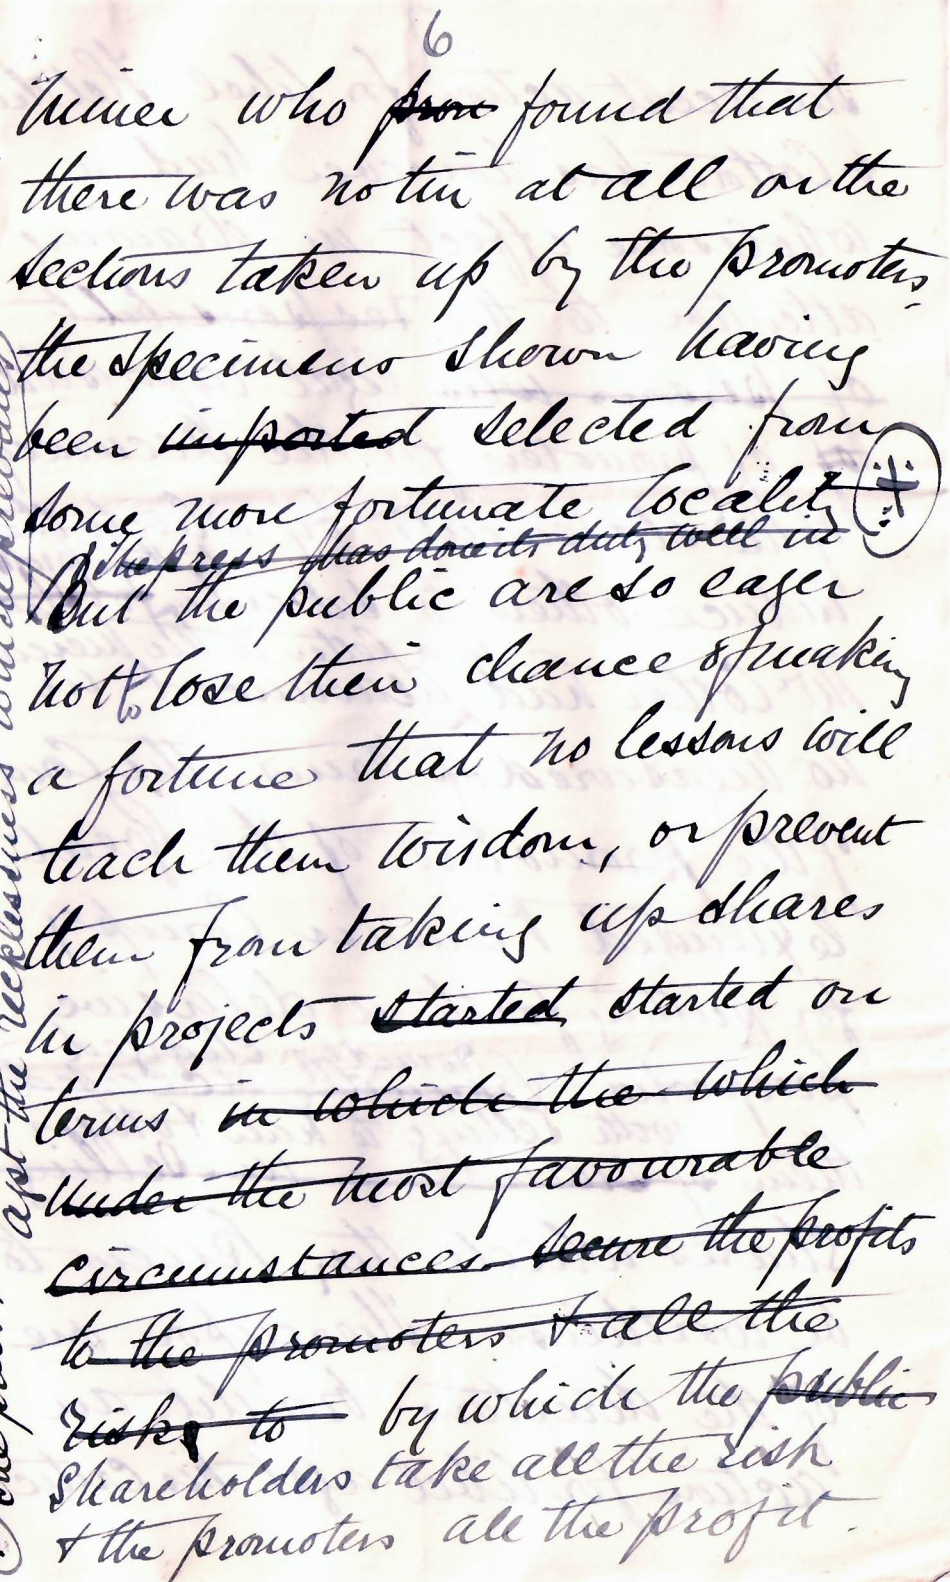 6
Miner who pron found that
there was no tin at all on the
sections taken up by the promoters,
the specimens shown having
been imported selected from
some more fortunate locality
the press has done its duty well in
But the public are so eager
not to lose their chance of making
a fortune that no lessons will
teach them wisdom, or prevent
them from taking up shares
in projects started started on
terms in which the which
under the most favourable
circumstances secure the profits
to the promoters & all the
risks to by which the public
Shareholders take all the risk
& the promoters all the profit.
agst the recklessness